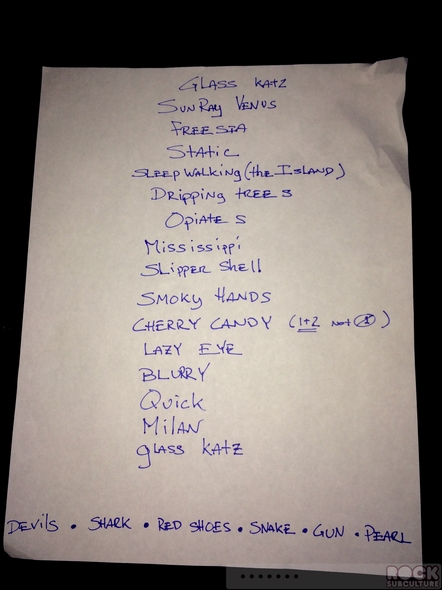 GLASS KATZ
SUNRAY VENUS
FREESIA
STATIC
SLEEPWALKING (the ISLAND)
DRIPPING TREES
OPIATES
MISSISSIPPI
SLIPPER SHELL
SMOKY HANDS
CHERRY CANDY (1+2 NOT 3)
LAZY EYE
BLURRY
QUICK
MILAN
gLASS KATZ
DEVILS • SHARK • RED SHOES • SNAKE • GUN • PEARL
ROCK
SUBCULTURE